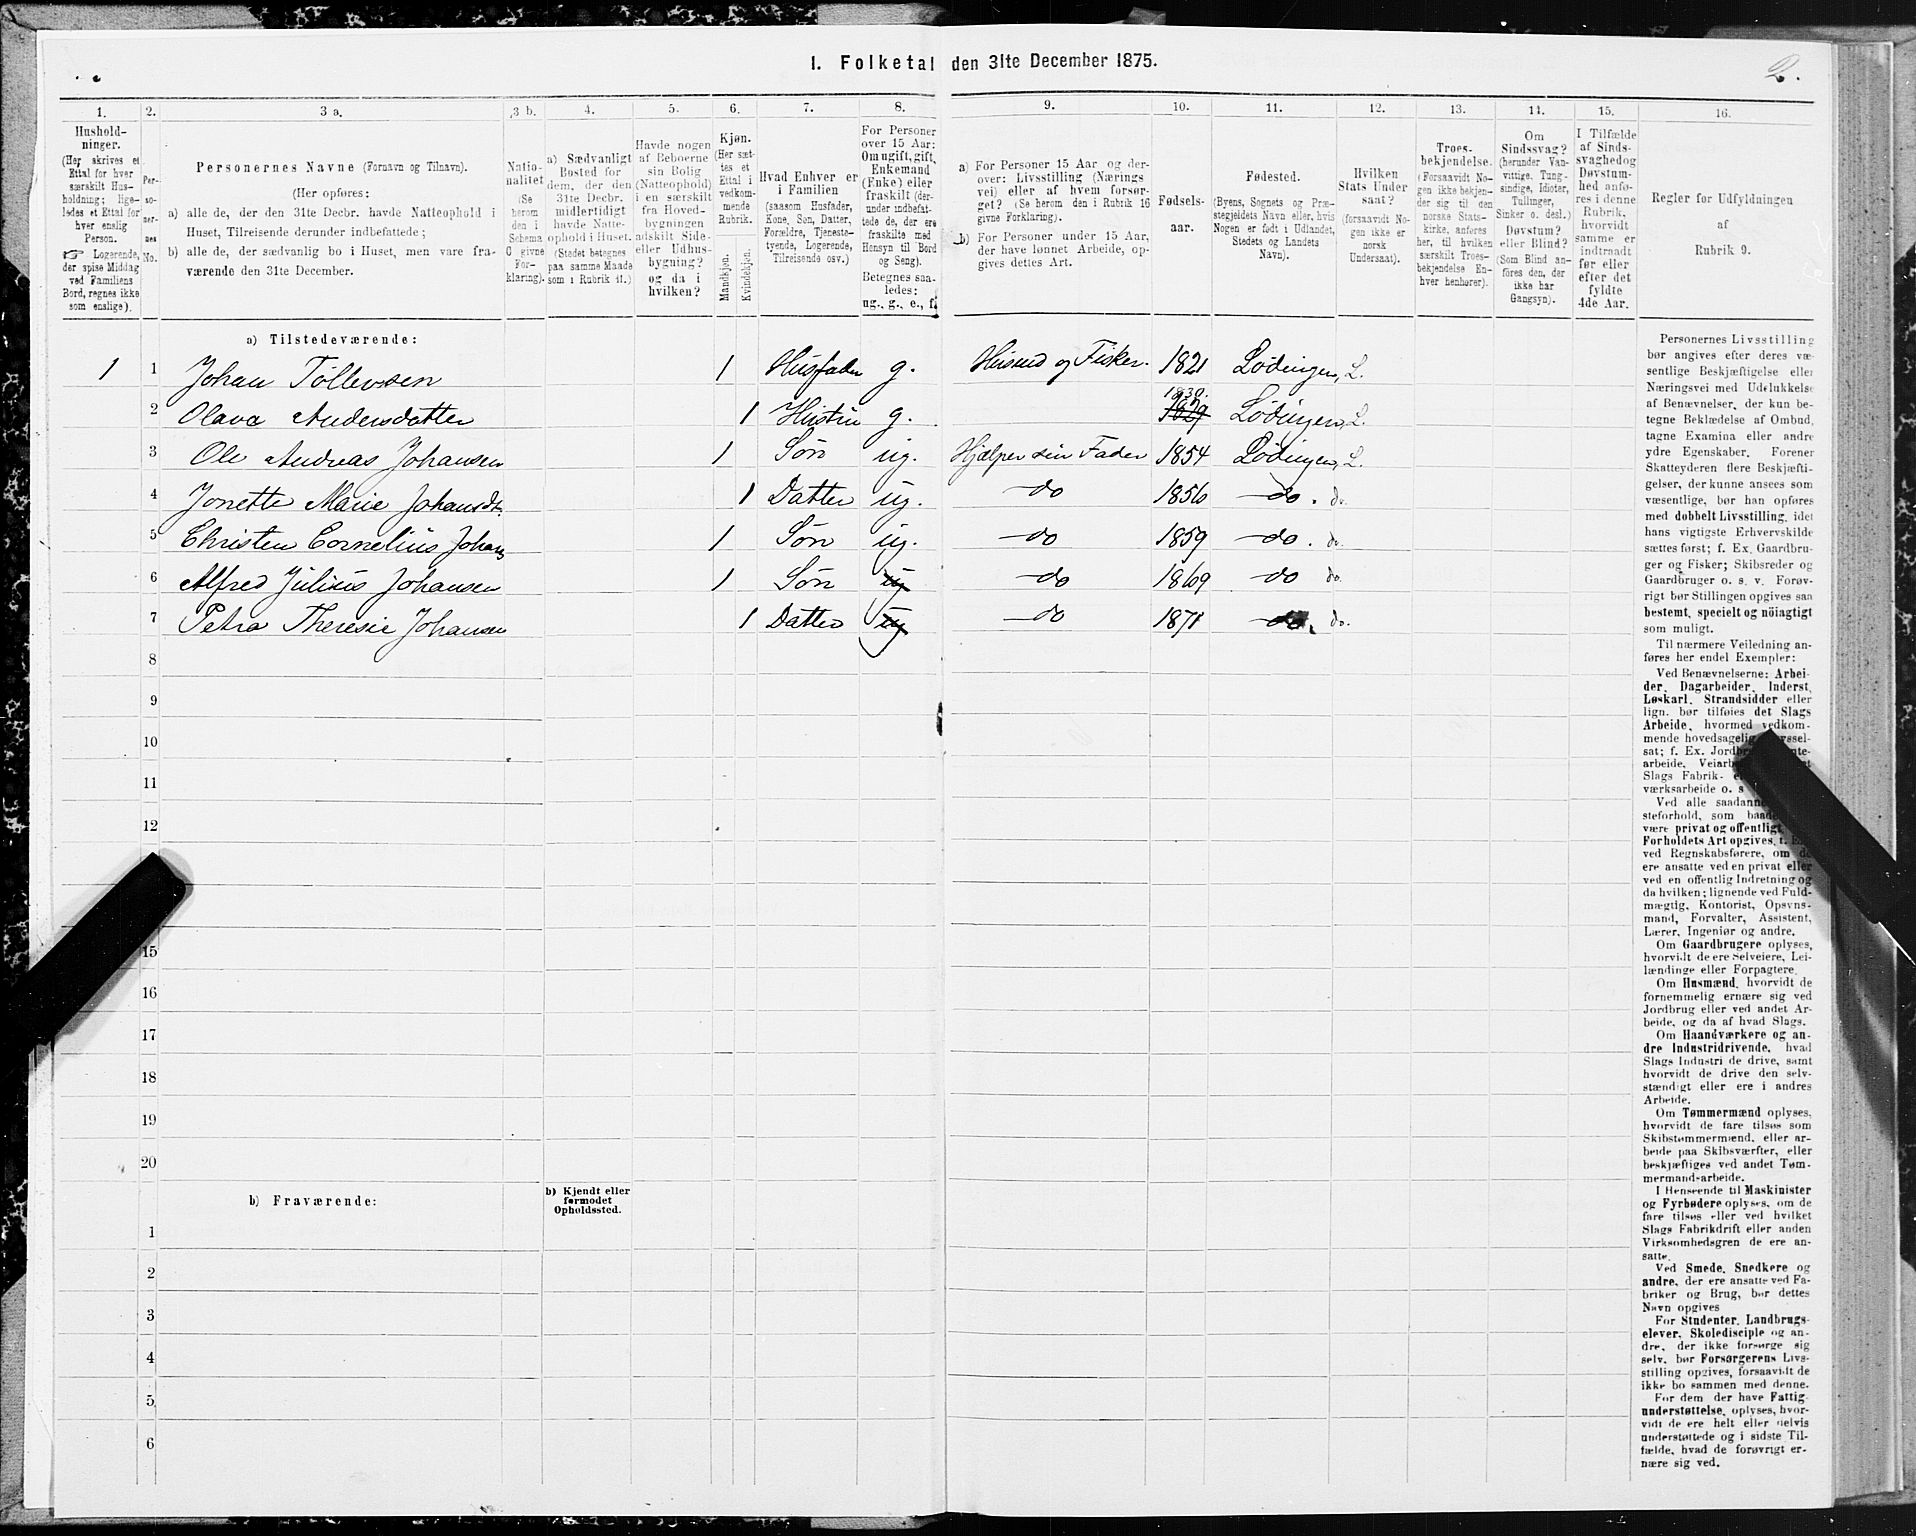 1. Folketal den 31te December 1875.
2.
1.
Hushold-
ninger.
(Her skrives et
Ettal for hver
særskilt Hus-
holdning; lige-
ledes et Ettal for
hver enslig
Person.
☞ Logerende,
der spise Middag
ved Familiens
Bord, regnes ikke
som enslige).
2.
Per-
so-
ner-
nes
No.
3 a.
Personernes Navne (Fornavn og Tilnavn).
(Her opføres:
a) alle de, der den 31te Decbr. havde Natteophold i
Huset, Tilreisende derunder indbefattede;
b) alle de, der sædvanlig bo i Huset, men vare fra-
værende den 31te December.
3 b.
Natio-
nalitet
(Se
herom
den i
Schema
C givne
For-
klaring).
4.
a) Sædvanligt
Bosted for
dem, der den
31te Decbr.
midlertidigt
havde Natte-
ophold i Huset.
(Stedet betegnes
paa samme Maade
som i Rubrik 11.)
5.
Havde nogen
af Beboerne
sin Bolig
(Natteophold)
i en særskilt
fra Hoved-
bygningen
adskilt Side-
eller Udhus-
bygning?
og da i
hvilken?
6.
Kjøn.
(Her sæt-
tes et
Ettal i
vedkom-
mende
Rubrik.
Mandkjøn.
Kvindekjøn.
7.
Hvad Enhver er
i Familien
(saasom Husfader,
Kone, Søn, Datter,
Forældre, Tjeneste-
tyende, Logerende,
Tilreisende osv.)
8.
For Personer
over 15 Aar:
Om ugift, gift,
Enkemand
(Enke) eller
fraskilt (der-
under indbefat-
tede de, der ere
fraskilte med
Hensyn til Bord
og Seng).
Betegnes saa-
ledes:
ug., g., e., f.
9.
a) For Personer 15 Aar og der-
over: Livsstilling (Nærings-
vei) eller af hvem forsør-
get? (Se herom den i Rubrik 16
givne Forklaring).
b) For Personer under 15 Aar,
der have lønnet Arbeide, op-
gives dettes Art.
10.
Fødsels-
aar.
11.
Fødested.
(Byens, Sognets og Præ-
stegjeldets Navn eller, hvis
Nogen er født i Udlandet,
Stedets og Landets
Navn).
12.
Hvilken
Stats Under
saat?
(forsaavidt No-
gen ikke er
norsk
Undersaat).
13.
Troes-
bekjendelse.
(Forsaavidt No-
gen ikke bekjen-
der sig til den
norske Stats-
kirke, anføres
her, til hvilken
særskilt Troes-
bekjendelse En-
hver henhører).
14.
Om
Sindssvag?
(herunder Van-
vittige, Tung-
sindige, Idioter,
Tullinger,
Sinker o. desl.)
Døvstum?
eller Blind?
(Som Blind an-
føres den, der
ikke har
Gangsyn).
15.
I Tilfælde
af Sinds-
svaghed og
Døvstum-
hed anfø-
res i denne
Rubrik,
hvorvidt
samme er
indtraadt
før eller
efter det
fyldte
4de Aar.
16.
Regler for Udfyldningen
af
Rubrik 9.
a) Tilstedeværende:
1 1 Johan Tollevsen 1 Husfader g. Husmd og Fisker. 1821 Lødingen, L.
1830.
2 Olava Andersdatter 1 Hustru g. 1829 Lødingen, L.
3 Ole Andreas Johansen 1 Søn ug. Hjælper sin Fader 1854 Lødingen, L.
4 Jonette Marie Johansdt. 1 Datter ug. -do 1856 -do. do.
5 Christen Cornelius Johans 1 Søn ug. -do 1859 -do. do.
6 Alfred Julius Johansen 1 Søn ug -do 1869 -do do.
7 Petra Theresie Johansen 1 Datter ug -do 1871 -do. do.
8
9
10
11
12
15
16
17
18
19
20
b) Fraværende:
b) Kjendt eller
formodet
Opholdssted.
1
2
3
4
5
6
Personernes Livsstilling
bør angives efter deres væ-
sentlige Beskjæftigelse eller
Næringsvei med Udelukkelse
af Benævnelser, der kun be-
tegne Beklædelse af Ombud,
tagne Examina eller andre
ydre Egenskaber. Forener
Skatteyderen flere Beskjæfti-
gelser, der kunne ansees som
væsentlige, bør han opføres
med dobbelt Livsstilling, idet
hans vigtigste Erhvervskilde
sættes først; f. Ex. Gaardbru-
ger og Fisker; Skibsreder og
Gaardbruger o. s. v. Forøv-
rigt bør Stillingen opgives saa
bestemt, specielt og nöiagtigt
som muligt.
Til nærmere Veiledning an-
føres her endel Exempler:
Ved Benævnelserne: Arbei-
der, Dagarbeider, Inderst,
Løskarl, Strandsidder eller
lign. bør tilføies det Slags
Arbeide, hvormed vedkom-
mende hovedsagelig
sat; f. Ex.
arbeide, Veiarb
Slags Fabrik-
værksarbeide o. s
Ved alle saadann
steforhold, som baade
være privat og offentligt,
Forholdets Art opgives, f. Ex.
ved Regnskabsførere, om de
ere ansatte ved en privat eller
ved en offentlig Indretning og
da hvilken; lignende ved Fuld-
mægtig, Kontorist, Opsyns-
mand, Forvalter, Assistent,
Lærer, Ingeniør og andre.
Om Gaardbrugere oplyses,
hvorvidt de ere Selveiere, Lei-
lændinge eller Forpagtere.
Om Husmænd, hvorvidt de
fornemmelig ernære sig ved
Jordbrug eller ved andet Ar-
beide, og da af hvad Slags.
Om Haandværkere og an-
dre Industridrivende, hvad
Slags Industri de drive, samt
hvorvidt de drive den selv-
stændigt eller ere i andres
Arbeide.
Om Tømmermænd oplyses,
hvorvidt de fare tilsøs som
Skibstømmermænd, eller ar-
beide paa Skibsværfter, eller
beskjæftiges ved andet Tøm-
mermandsarbeide.
I Henseende til Maskinister
og Fyrbødere oplyses, om de
fare tilsøs eller ved hvilket
Slags Fabrikdrift eller anden
Virksomhedsgren de ere an-
satte.
Ved Smede, Snedkere og
andre, der ere ansatte ved Fa-
briker og Brug, bør dettes
Navn opgives
For Studenter, Landbrugs-
elever, Skoledisciple og an-
dre, der ikke forsørge sig
selv, bør Forsørgerens Livs-
stilling opgives, forsaavidt de
ikke bo sammen med denne.
For dem der have Fattig-
understøttelse, oplyses, hvor-
vidt de ere helt eller delvis
understøttede og i sidste Til-
fælde, hvad de forøvrigt er-
nære sig ved.